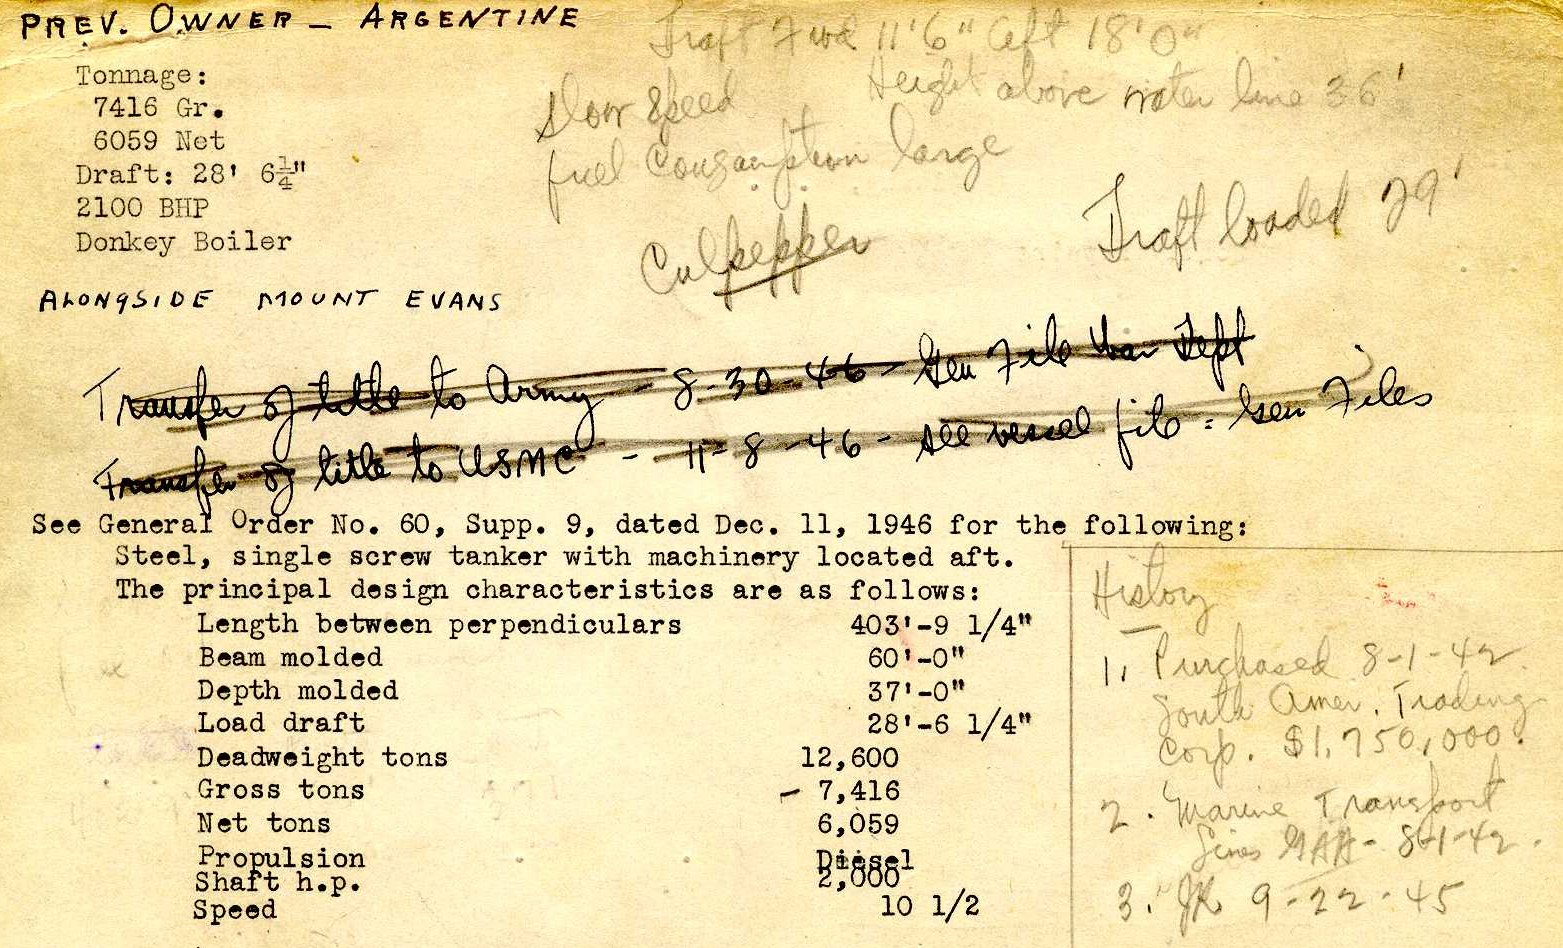 PREV. OWNER - ARGENTINE
Draft Fwd 11'6" Aft 18'0"
Height above water line 36'
Tonnage:
7416 Gr.
6059 Net
Draft: 28' 6¼"
2100 BHP
Donkey Boiler
Slow Speed
fuel Consumption large
Draft loaded 29'
Culpepper
ALONGSIDE MOUNT EVANS
Transfer of title to Army - 8-30-46 - Gen File War Dept
Transfer of title to USMC - 11-8-46 - see vessel file = Gen Files
See General Order No. 60, Supp. 9, dated Dec. 11, 1946 for the following:
Steel, single screw tanker with machinery located aft.
The principal design characteristics are as follows:
Length between perpendiculars 403'-9 1/4"
Beam molded 60'-0"
Depth molded 37'-0"
Load draft 28'-6 1/4"
Deadweight tons 12,600
Gross tons - 7,416
Net tons 6,059
Propulsion Diesel
Shaft h.p. 2,000
Speed 10 1/2
History
1. Purchased 8-1-42
South Amer. Trading
Corp. $1,750,000.
2. Marine Transport
Lines GAA - 8-1-42.
3. 9-22-45